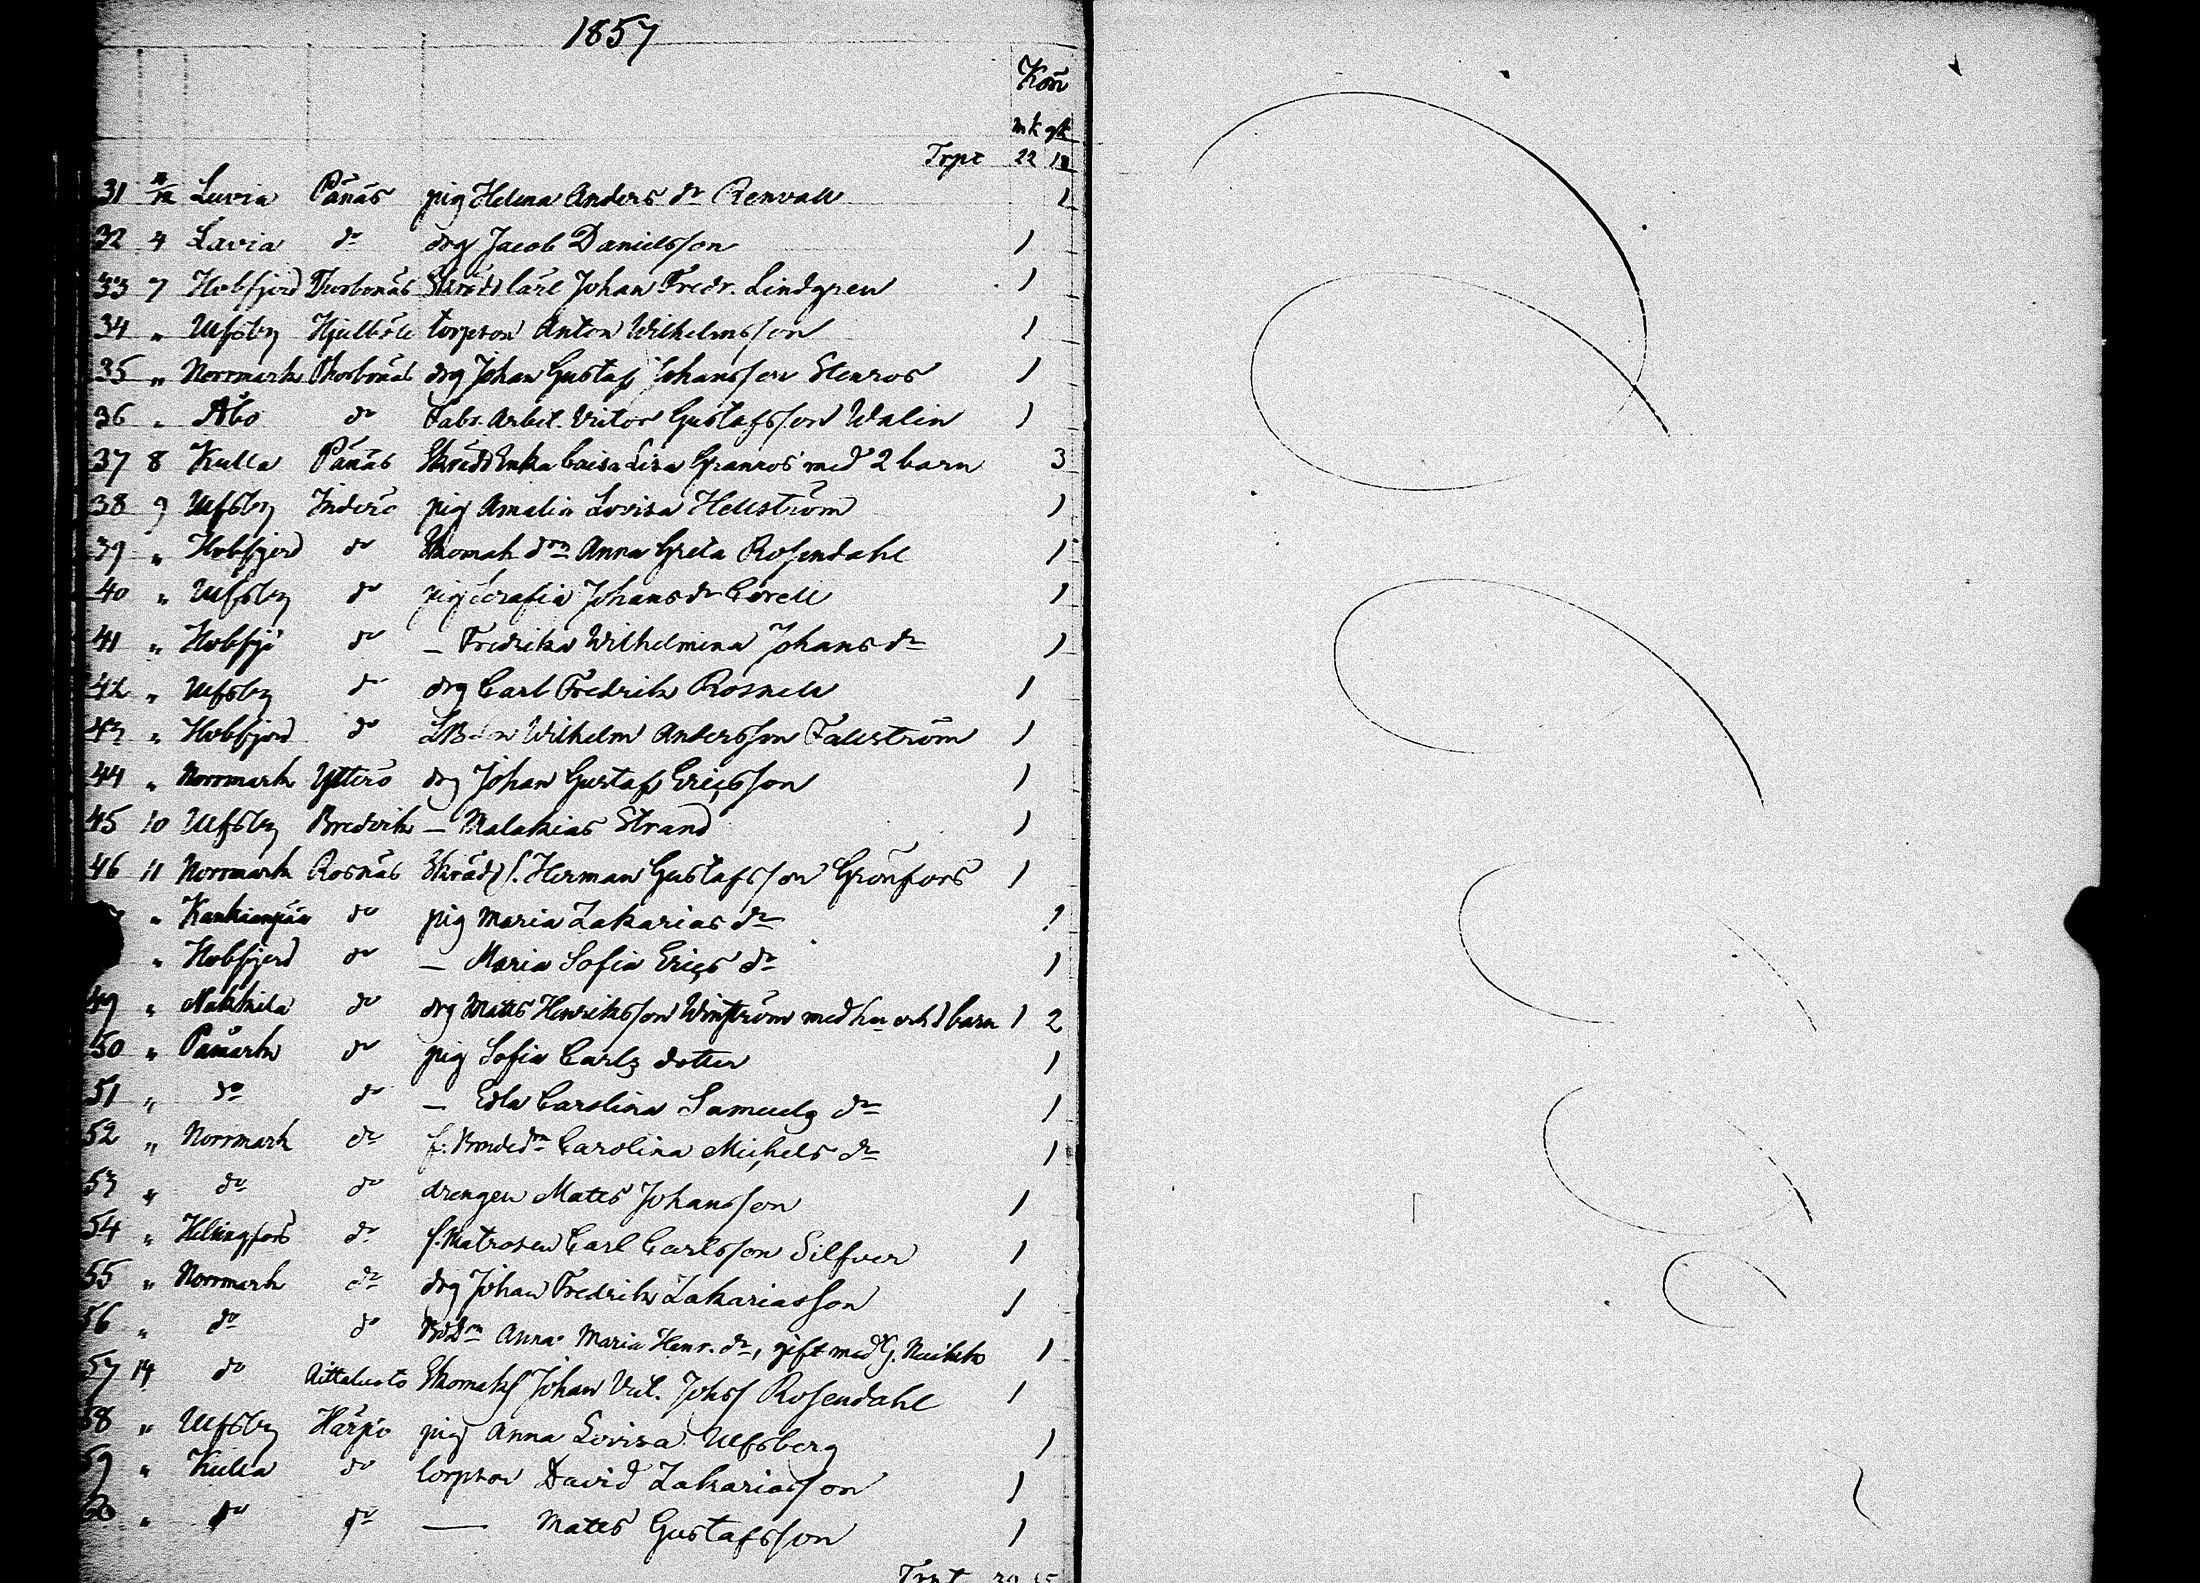 1857
Kön
mk qk
Trpt 22 12
31 Luvia Pånäs pig Helena Anders dr Renvall 1
32 4 Lavia do drg Jacob Danielsson 1
33 7 Hvbfjerd Thorbonäs Skrädd lärl Johan Fredr. Lindgren 1
34 " Ulfsby Hjulböle torpson Anton Wilhelmsson 1
35 " Norrmark Thorbonäs drg Johan Gustaf Johansson Stenros 1
36 " Åbo do Fabr. Arbet. Victor Gustafsson Walin 1
37 8 Kulla Pånäs Skrädd Enka Caisa Lisa Granros med 2 barn 3
38 9 Ulfsby Inderö pig Amalia Lovisa Hellström 1
39 " Hvbfjerd do Skomak drn Anna Greta Rosendahl 1
40 " Ulfsby do pig Serafia Johans dr Corell 1
41 " Hvbfjd do — Fredrika Wilhelmina Johans dr 1
42 " Ulfsby do drg Carl Fredrik Rosnell 1
43 " Hvbfjerd do Wilhelm Andersson Fallström 1
44 " Norrmark Ytterö drg Johan Gustaf Ericsson 1
45 10 Ulfsby Bredvik — Malakias Strand 1
46 11 Norrmark Rosnäs Skrädd f. Herman Gustafsson Grönfors 1
" Kankianpää do pig Maria Zakarias dr 1
" Hvbfjerd do — Maria Sofia Erics dr 1
49 " Nakkila do drg Matts Henriksson Winström med hu och 1 barn 1 2
50 " Påmark do pig Sofia Carls dotter 1
51 " do do — Edla Carolina Samuels dr 1
52 " Norrmark do f. Bondedrn Carolina Michels dr 1
53 " do do drengen Matts Johansson 1
54 " Helsingfors do f. Matrosen Carl Carlsson Silfver 1
55 " Norrmark do drg Johan Fredrik Zakariasson 1
56 " do do Anna Maria Henr. dr, gift med G. 1
57 14 do Aittaluoto Skomakf Johan Vil. Johss Rosendahl 1
58 " Ulfsby Härpö pig Anna Lovisa Ulfsberg 1
59 " Kulla do torpson David Zakariasson 1
60 " do do — Matts Gustafsson 1
Trpt